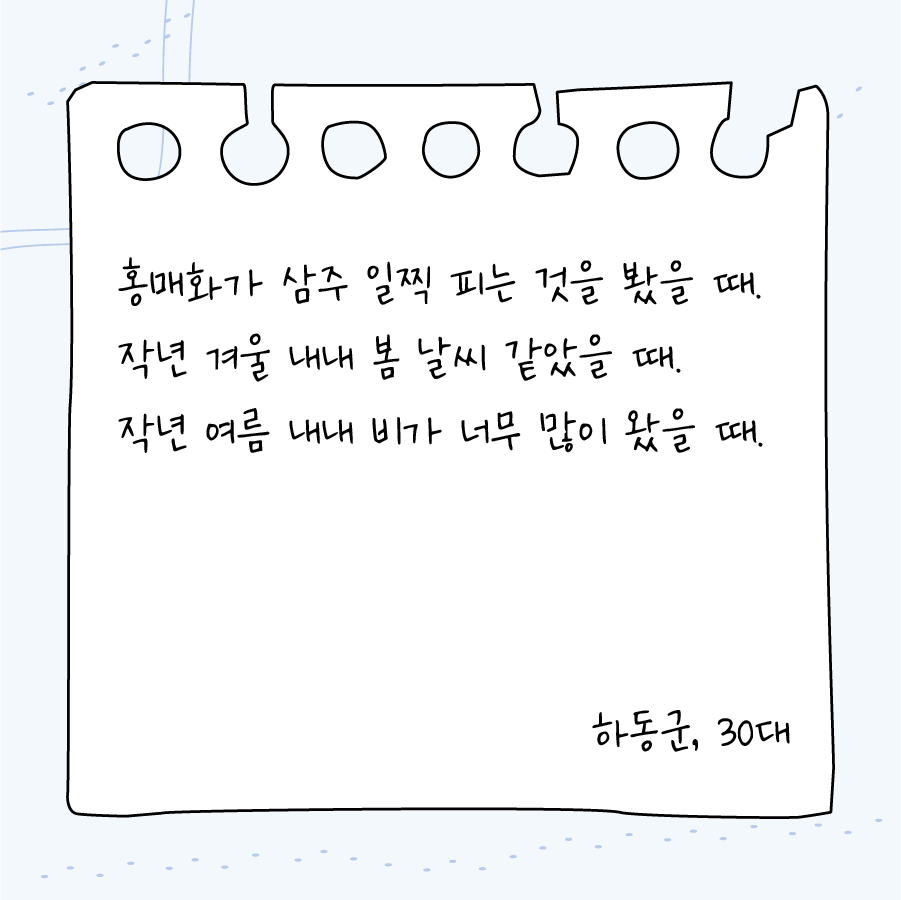 홍매화가 삼주 일찍 피는 것을 봤을 때.
작년 겨울 내내 봄 날씨 같았을 때.
작년 여름 내내 비가 너무 많이 왔을 때.
하동군, 30대